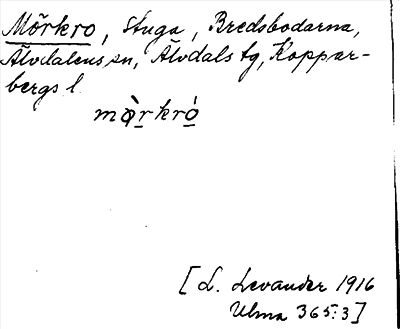 Mörkro, Stuga, Bredsbodarna,
Älvdalens sn, Älvdals tg, Koppar-
bergs l.
mɷ̀rkró
[L. Levander 1916
Ulma 365:3]